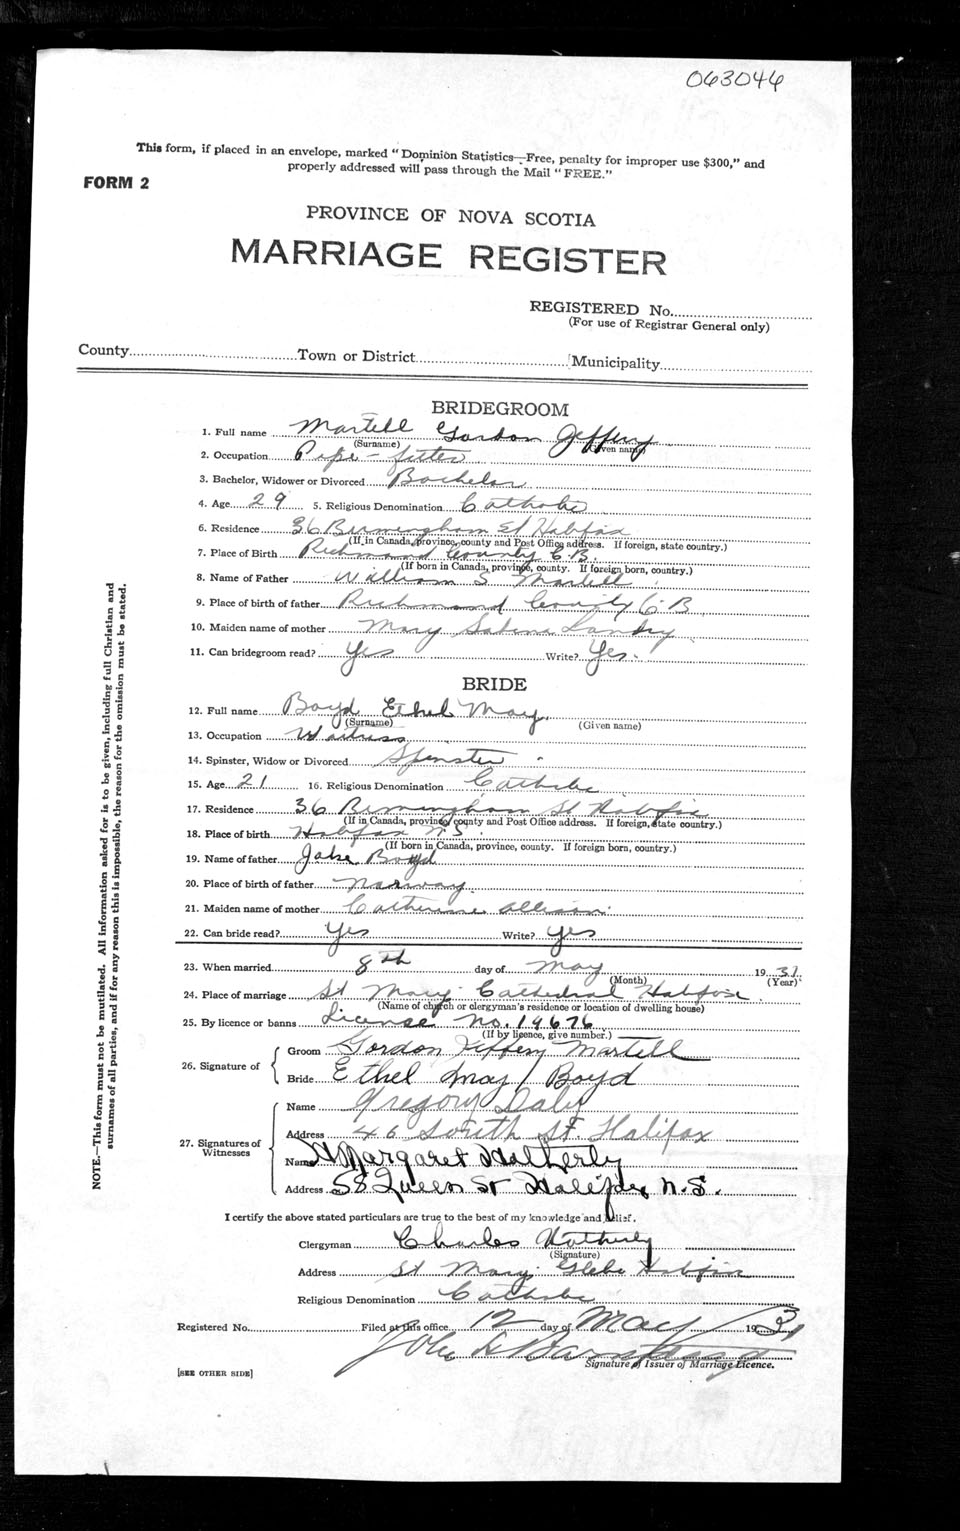 063046
This form, if placed in an envelope, marked "Dominion Statistics—Free, penalty for improper use $300," and
properly addressed will pass through the Mail "FREE."
FORM 2
PROVINCE OF NOVA SCOTIA
MARRIAGE REGISTER
REGISTERED No.
(For use of Registrar General only)
County Town or District Municipality
BRIDEGROOM
1. Full name Martell Gordon Jeffery
(Surname) (Given name)
2. Occupation Pipe-fitter
3. Bachelor, Widower or Divorced Bachelor
4. Age 29 5. Religious Denomination Catholic
6. Residence 36 Birmingham St Halifax
(If in Canada, province, county and Post Office address. If foreign, state country.)
7. Place of Birth Richmond County C.B.
(If born in Canada, province, county. If foreign born, country.)
8. Name of Father William S Martell
9. Place of birth of father Richmond County C B
10. Maiden name of mother Mary Landry
11. Can bridegroom read? Yes Write? Yes.
BRIDE
12. Full name Boyd Ethel May
(Surname) (Given name)
13. Occupation Waitress
14. Spinster, Widow or Divorced Spinster
15. Age 21 16. Religious Denomination Catholic
17. Residence 36 Birmingham St Halifax
(If in Canada, province, county and Post Office address. If foreign, state country.)
18. Place of birth Halifax N.S.
(If born in Canada, province, county. If foreign born, country.)
19. Name of father Boyd
20. Place of birth of father Norway
21. Maiden name of mother Catherine Allison
22. Can bride read? Yes Write? Yes
23. When married 8th day of May 1931
(Month) (Year)
24. Place of marriage St Mary Cathedral Halifax
(Name of church or clergyman's residence or location of dwelling house)
25. By licence or banns License No. 19676
(If by licence, give number.)
26. Signature of
Groom Gordon Jeffery Martell
Bride Ethel May Boyd
27. Signatures of Witnesses
Name Gregory Daley
Address 46 South St. Halifax
Name Margaret Hatherly
Address 58 Queen St Halifax N.S.
I certify the above stated particulars are true to the best of my knowledge and belief.
Clergyman Charles Hatherly
(Signature)
Address St Mary Glebe Halifax
Religious Denomination Catholic
Registered No. Filed at this office 12 day of May 1931
John
Signature of Issuer of Marriage Licence.
[SEE OTHER SIDE]
NOTE.—This form must not be mutilated. All information asked for is to be given, including full Christian and
surnames of all parties, and if for any reason this is impossible, the reason for the omission must be stated.